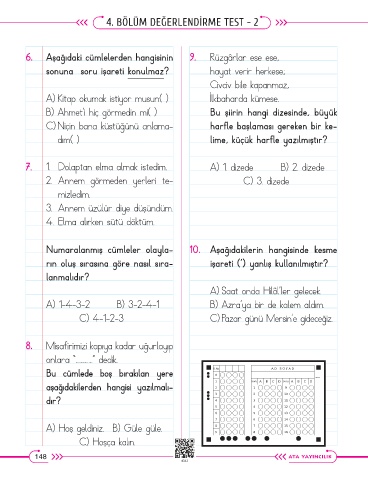 4. BÖLÜM DEĞERLENDİRME TEST - 2
6. Aşağıdaki cümlelerden hangisinin
sonuna soru işareti konulmaz?
A) Kitap okumak istiyor musun( )
B) Ahmet'i hiç görmedin mi( )
C) Niçin bana küstüğünü anlama-
dım( )
7. 1. Dolaptan elma almak istedim.
2. Annem görmeden yerleri te-
mizledim.
3. Annem üzülür diye düşündüm.
4. Elma alırken sütü döktüm.
Numaralanmış cümleler olayla-
rın oluş sırasına göre nasıl sıra-
lanmalıdır?
A) 1-4-3-2 B) 3-2-4-1
C) 4-1-2-3
8. Misafirimizi kapıya kadar uğurlayıp
onlara "........." dedik.
Bu cümlede boş bırakılan yere
aşağıdakilerden hangisi yazılmalı-
dır?
A) Hoş geldiniz. B) Güle güle.
C) Hoşça kalın.
9. Rüzgârlar ese ese,
hayat verir herkese,
Civciv bile kapanmaz,
İlkbaharda kümese.
Bu şiirin hangi dizesinde, büyük
harfle başlaması gereken bir ke-
lime, küçük harfle yazılmıştır?
A) 1. dizede B) 2. dizede
C) 3. dizede
10. Aşağıdakilerin hangisinde kesme
işareti (') yanlış kullanılmıştır?
A) Saat onda Hilâl'ler gelecek.
B) Azra'ya bir de kalem aldım.
C) Pazar günü Mersin'e gideceğiz.
AD SOYAD
148
ATA YAYINCILIK